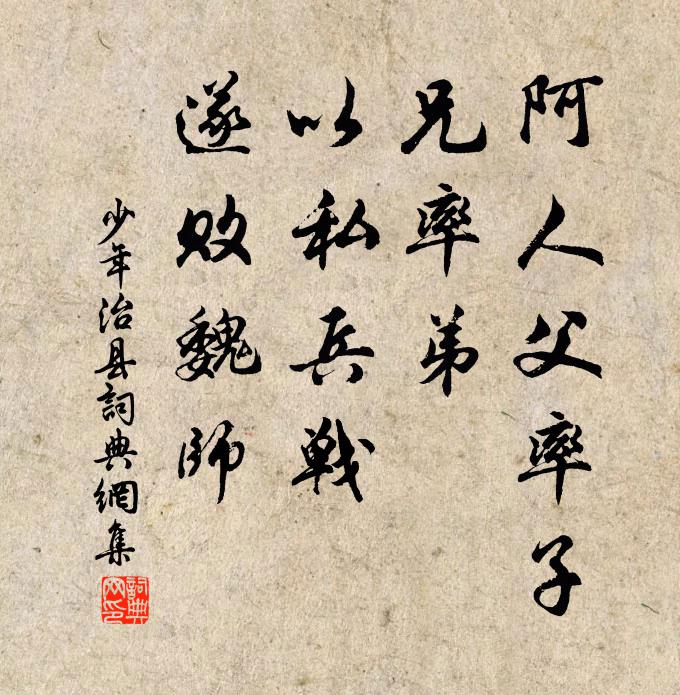 阿人父率子
兄率弟
以私兵战
遂败魏师
少年治县詞典網集
詞典
网印